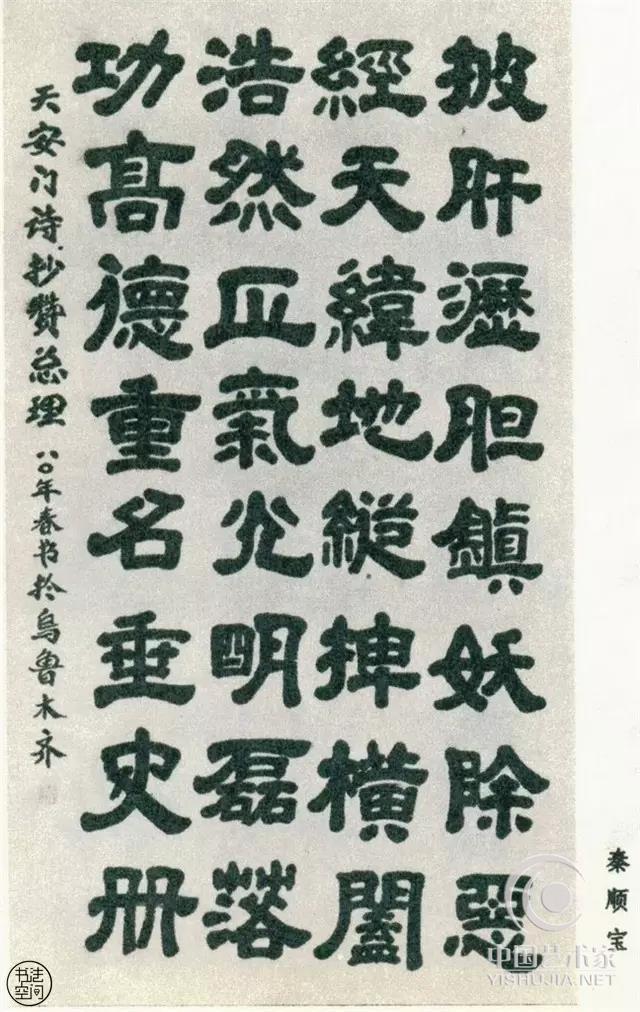 披肝瀝胆鎮妖除惡
經天緯地縱捭橫闔
浩然正氣光明磊落
功高德重名垂史册
天安门诗抄赞总理 八〇年春书於乌鲁木齐
秦顺宝
中国艺术家
YISHUJIA.NET
书法
空间